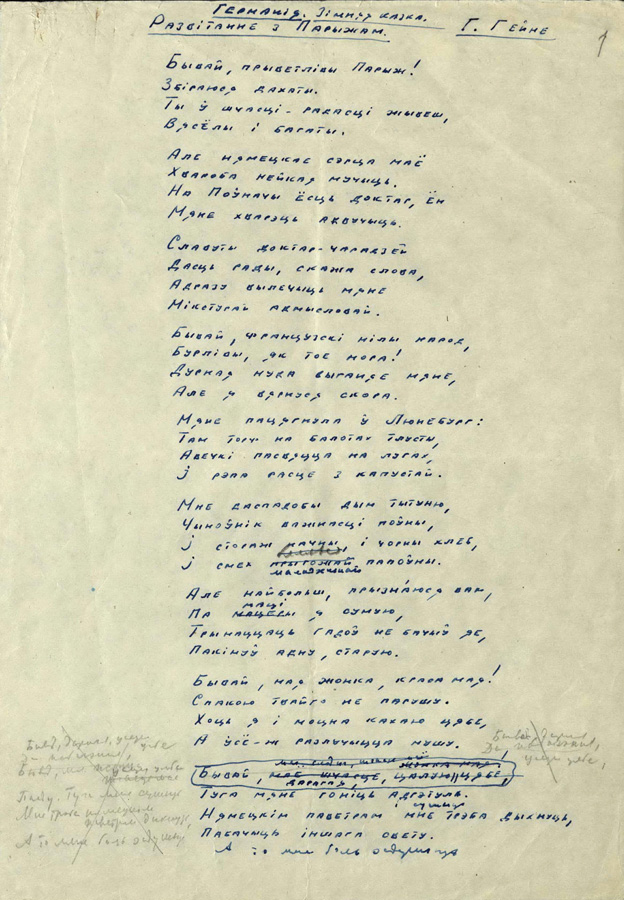 Германія. Зімняя казка.
Развітанне з Парыжам. Г. Гейне
1
Бывай, прыветлівы Парыж!
Збіраюся дахаты.
Ты ў шчасці-радасці жывеш,
Вясёлы і багаты.
Але нямецкае сэрца маё
Хвароба нейкая мучыць.
На Поўначы ёсць доктар, ён
Мяне хварэць адвучыць.
Славуты доктар-чарадзей
Дасць рады, скажа слова,
Адразу вылечыць мяне
Мікстурай адмысловай.
Бывай, французскі мілы народ,
Бурлівы, як тое мора!
Дурная нуда выганяе мяне,
Але я вярнуся скора.
Мяне пацягнула ў Люнебург:
Там торф на балотах тлусты,
Авечкі пасвяцца на лугах,
І рэпа расце з капустай.
Мне даспадобы дым тытуню,
Чыноўнік важнасці поўны,
І стораж начны, і чорны хлеб,
І смех прыгожай папоўны.
маладзенькай
Але найбольш, прызнаюся вам,
маці
Па мацеры я сумую,
Трынаццаць гадоў не бачыў яе,
Пакінуў адну, старую.
Бывай, мая жонка, краса мая!
Спакою твайго не парушу.
Хоць я і моцна кахаю цябе,
А ўсё-ж разлучыцца мушу.
жонка мая
Бывай, маё шчасце, цалую цябе,
дарагая
Туга мяне гоніць адгэтуль.
Нямецкім паветрам мне трэба дыхнуць,
Пабачыць іншага свету.
А то мне боль